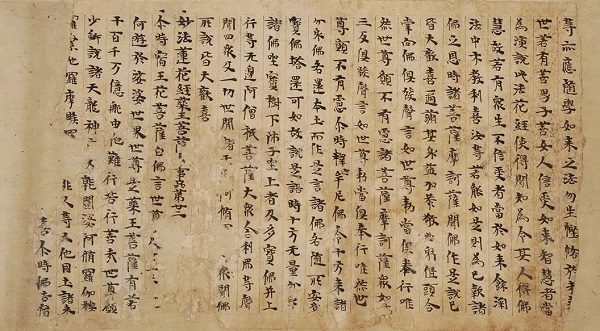 等亦應隨學如來之法勿生慳悋於未
世若有善男子善女人信受如來智慧者當
為演說此法花經使得聞知為令其人得佛
慧故若有眾生不信受者當於如來餘深
法中示教利喜汝等若能如是則為已報諸
佛之恩時諸菩薩摩訶薩聞佛作是說已
皆大歡喜遍滿其身益加恭敬曲躬低頭合
掌向佛俱發聲言如世尊勅當俱奉行唯
然世尊願不有慮諸菩薩摩訶薩眾如是
三反俱發聲言如世尊勅當俱奉行唯然世
尊願不有慮尒時釋迦牟尼佛令十方來諸
分身佛各還本土而作是言諸佛各隨所安多
寶佛塔還可如故說是語時十方无量分身
諸佛坐寶樹下師子坐上者及多寶佛并上
行等无邊阿僧祇菩薩大眾舍利弗等聲
聞四眾及一切世間天阿脩眾聞佛
所說皆大歡喜
妙法蓮花經藥王菩薩事品第廿三
尒時宿王花菩薩白佛言世尊
何遊於娑婆世界世尊是藥王菩薩有若
干百千万億那由他難行苦行善哉世尊願
少解說諸天龍神叉乾闥婆阿脩羅伽樓
羅緊那羅摩睺羅非人等又他國土諸來
喜尒時佛告宿